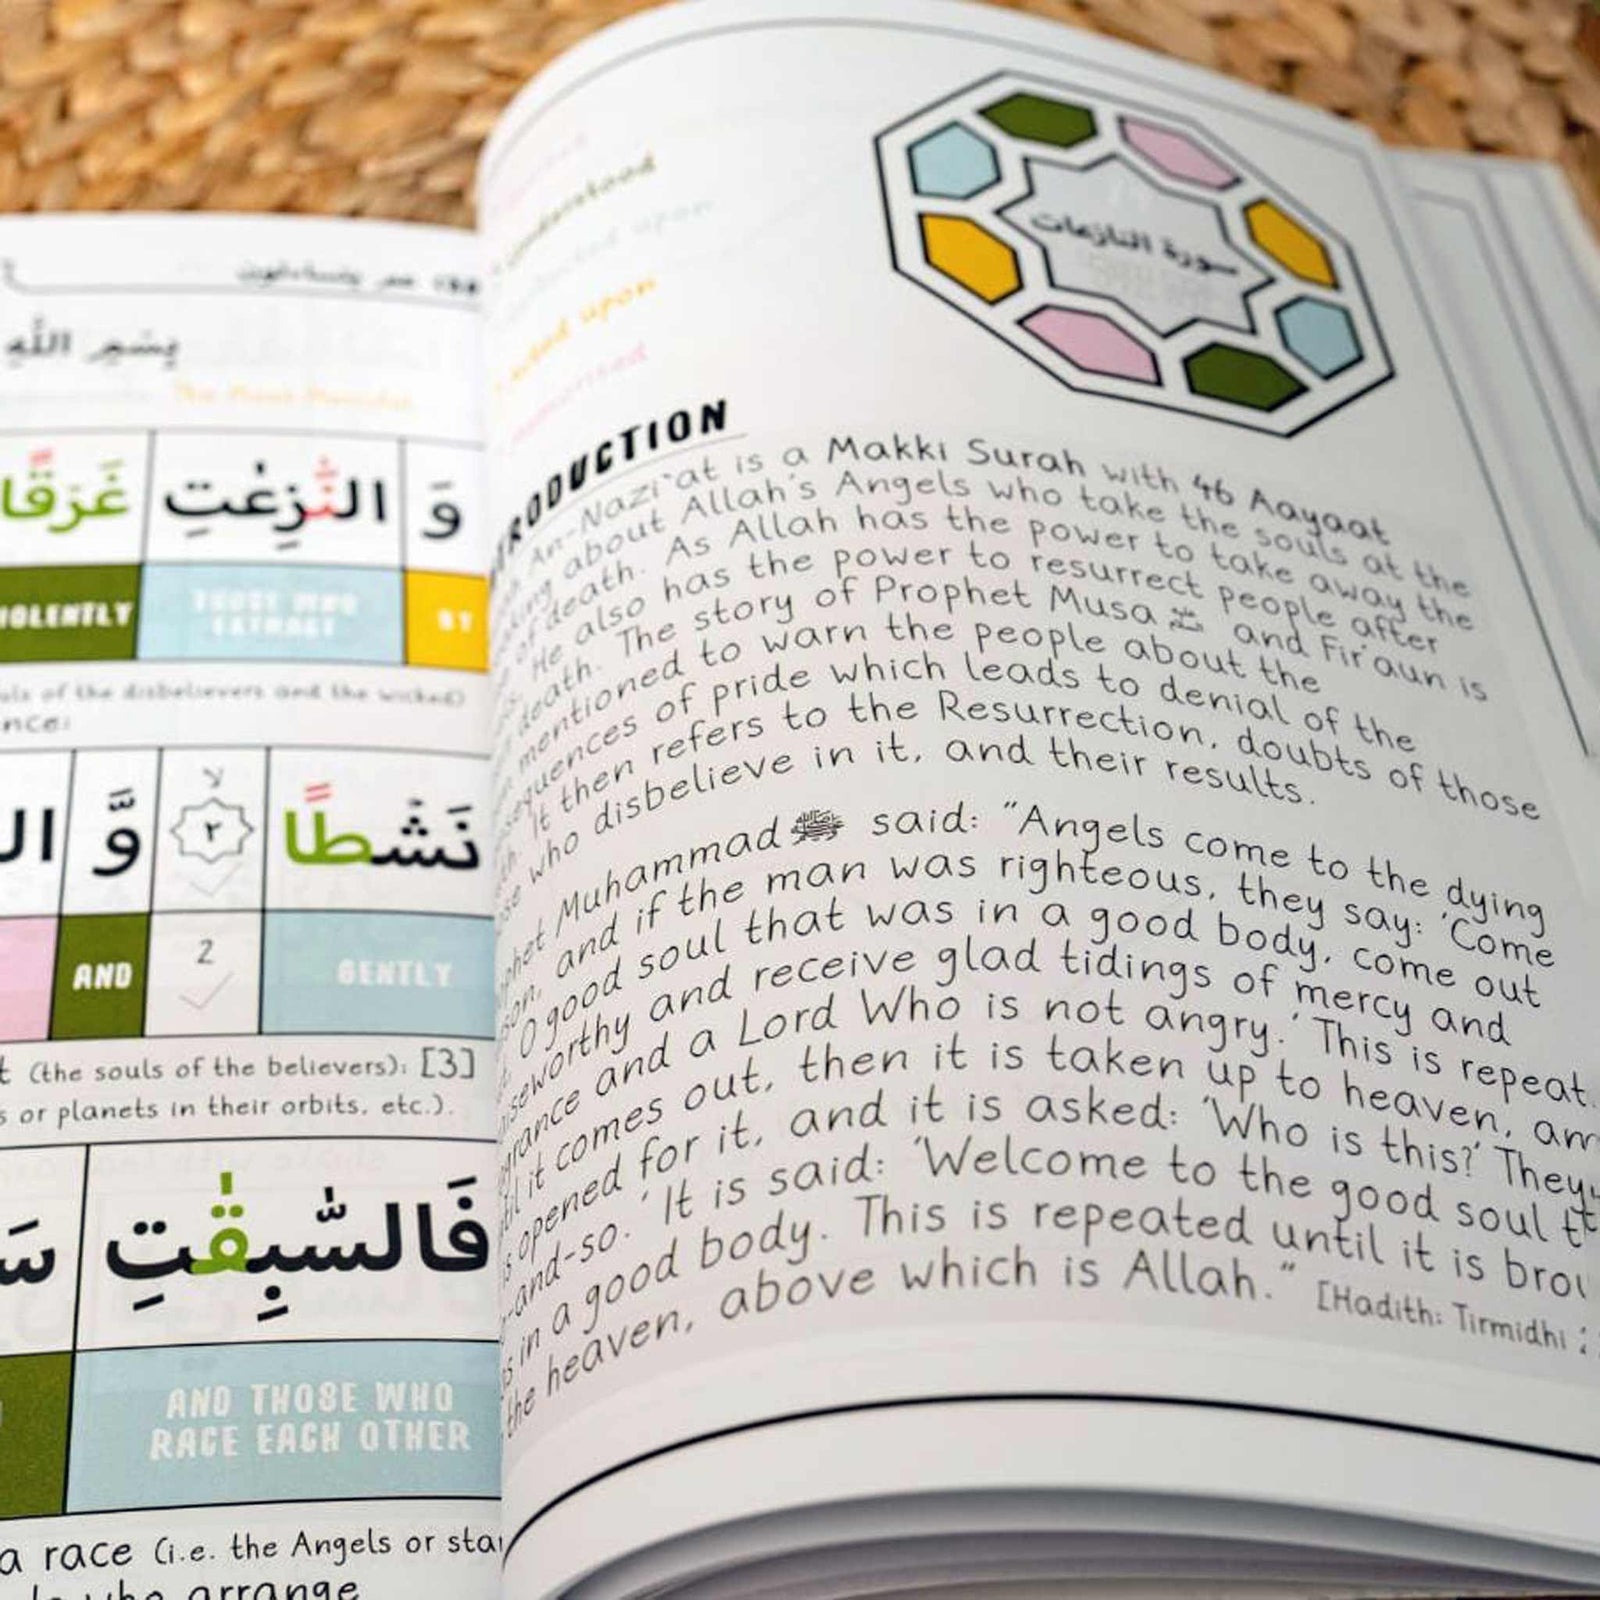 عم يتساءلون
بِسْمِ اللَّهِ
The Most Merciful
وَ النّٰزِعٰتِ غَرْقًا
BY THOSE WHO EXTRACT VIOLENTLY
of the disbelievers and the wicked)
نَشْطًا ٢ وَّ ال
GENTLY 2 AND
(the souls of the believers); [3]
or planets in their orbits, etc.).
فَالسّٰبِقٰتِ
AND THOSE WHO
RACE EACH OTHER
a race (i.e. the Angels or
who arrange
understood
upon
upon
سورة النازعات
INTRODUCTION
An-Nazi`at is a Makki Surah with 46 Aayaat
about Allah's Angels who take the souls at the
of death. As Allah has the power to take away the
He also has the power to resurrect people after
death. The story of Prophet Musa and Fir`aun is
mentioned to warn the people about the
of pride which leads to denial of the
It then refers to the Resurrection, doubts of those
who disbelieve in it, and their results.
Muhammad ﷺ said: "Angels come to the dying
and if the man was righteous, they say: 'Come
O good soul that was in a good body, come out
and receive glad tidings of mercy and
and a Lord Who is not angry.' This is
it comes out, then it is taken up to heaven,
opened for it, and it is asked: 'Who is this?' They
'It is said: 'Welcome to the good soul
in a good body. This is repeated until it is
the heaven, above which is Allah." [Hadith: Tirmidhi